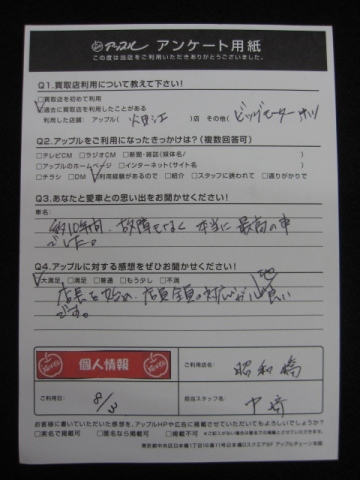 アップル アンケート用紙
この度は当店をご利用いただきありがとうございました。
Q1.買取店利用について教えて下さい!
□買取店を初めて利用
□過去に買取店を利用したことがある
利用した店舗: アップル( 蟹江 )店 その他( ビッグモーター
Q2.アップルをご利用になったきっかけは?(複数回答可)
□テレビCM □ラジオCM □新聞・雑誌(媒体名/ )
□アップルのホームページ □インターネット(サイト名 )
□チラシ □DM □利用経験があるので □紹介 □スタッフに誘われて □通りがかりで
Q3.あなたと愛車との思い出をお聞かせください!
車名:
約10年間、故障もなく 本当に最高の車
でした。
Q4.アップルに対する感想をぜひお聞かせください!
□大満足 □満足 □普通 □もう少し □不満
店長を始め、店員全員の対応が 心地良い
です。
個人情報
ご利用店名: 昭和橋
ご利用日: 8/3
担当スタッフ名:
お客様に書いていただいた感想を、アップルHPや広告に掲載させていただいてもよろしいでしょうか?
□実名で掲載可 □匿名なら掲載可 □掲載不可 ※ご記入がない場合は匿名での掲載とさせていただきます。
東京都中央区日本橋1丁目16番11号日本橋DスクエアSF アップルチェーン本部